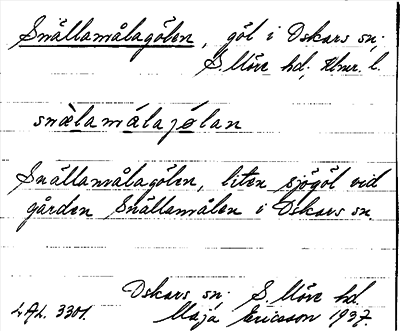 Snällamålagölen, göl i Oskars sn;
S. Möre hd, Kmr. l.
snælamálajǿlan
Snällamålagölen, liten sjögöl vid
gården Snällamålen i Oskars sn.
Oskars sn. S. Möre hd.
L.A.L. 3301. Maja Ericsson 1937.